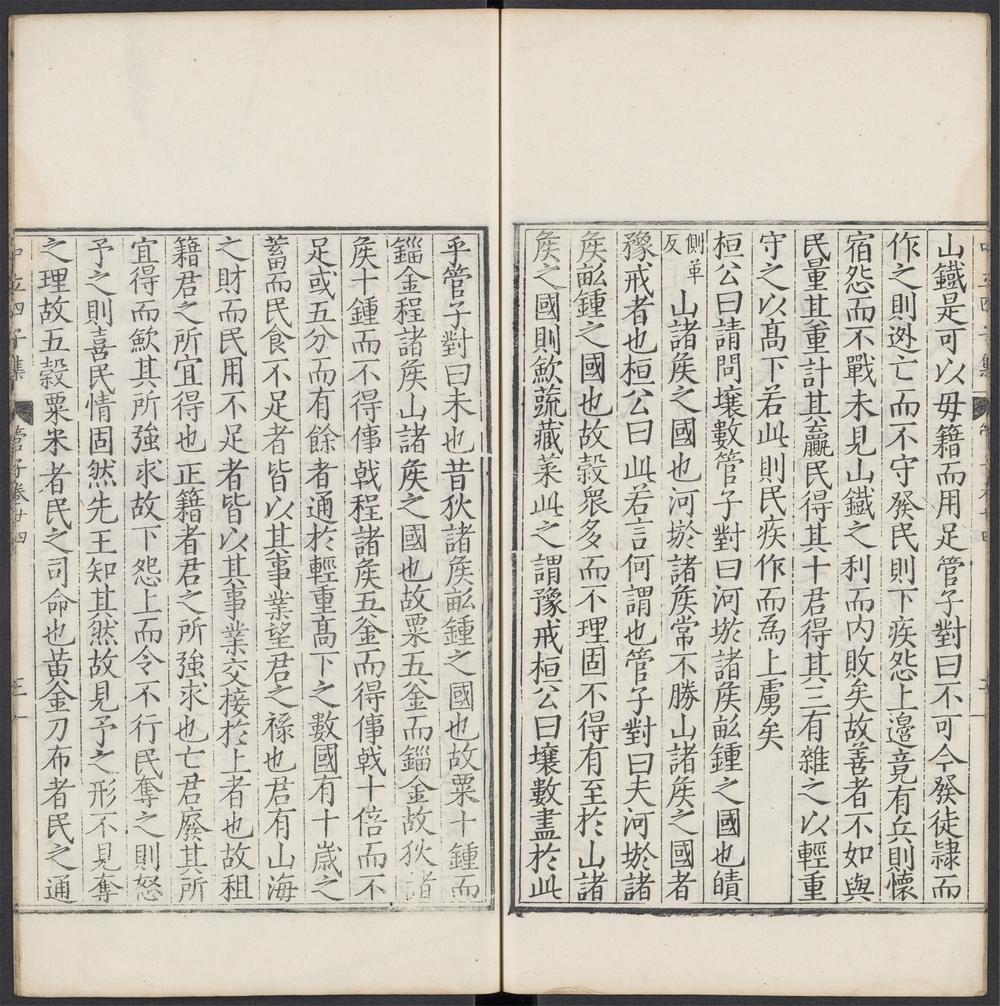 山鐵是可以毋籍而用足管子對曰不可今發徒隷而
作之則逃亡而不守發民則下疾怨上邊竟有兵則懷
宿怨而不戰未見山鐵之利而内敗矣故善者不如與
民量其重計其贏民得其十君得其三有雜之以輕重
守之以髙下若此則民疾作而為上虜矣
桓公曰請問壤數管子對曰河㳀諸矦畝鍾之國也皟
側革反山諸矦之國也河㳀諸矦常不勝山諸矦之國者
豫戒者也桓公曰此若言何謂也管子對曰夫河㳀諸
矦畝鍾之國也故穀衆多而不理固不得有至於山諸
矦之國則歛蔬藏菜此之謂豫戒桓公曰壤數盡於此
乎管子對曰未也昔狄諸矦畝鍾之國也故粟十鍾而
錙金程諸矦山諸矦之國也故粟五釜而錙金故狄諸
矦十鍾而不得倳戟程諸矦五釡而得倳戟十倍而不
足或五分而有餘者通於輕重髙下之數國有十歲之
蓄而民食不足者皆以其事業望君之祿也君有山海
之財而民用不足者皆以其事業交接於上者也故租
籍君之所宜得也正籍者君之所強求也亡君廢其所
宜得而歛其所強求故下怨上而令不行民奪之則怒
予之則喜民情固然先王知其然故見予之形不見奪
之理故五穀粟米者民之司命也黄金刀布者民之通
中立四子集 管子卷廿四